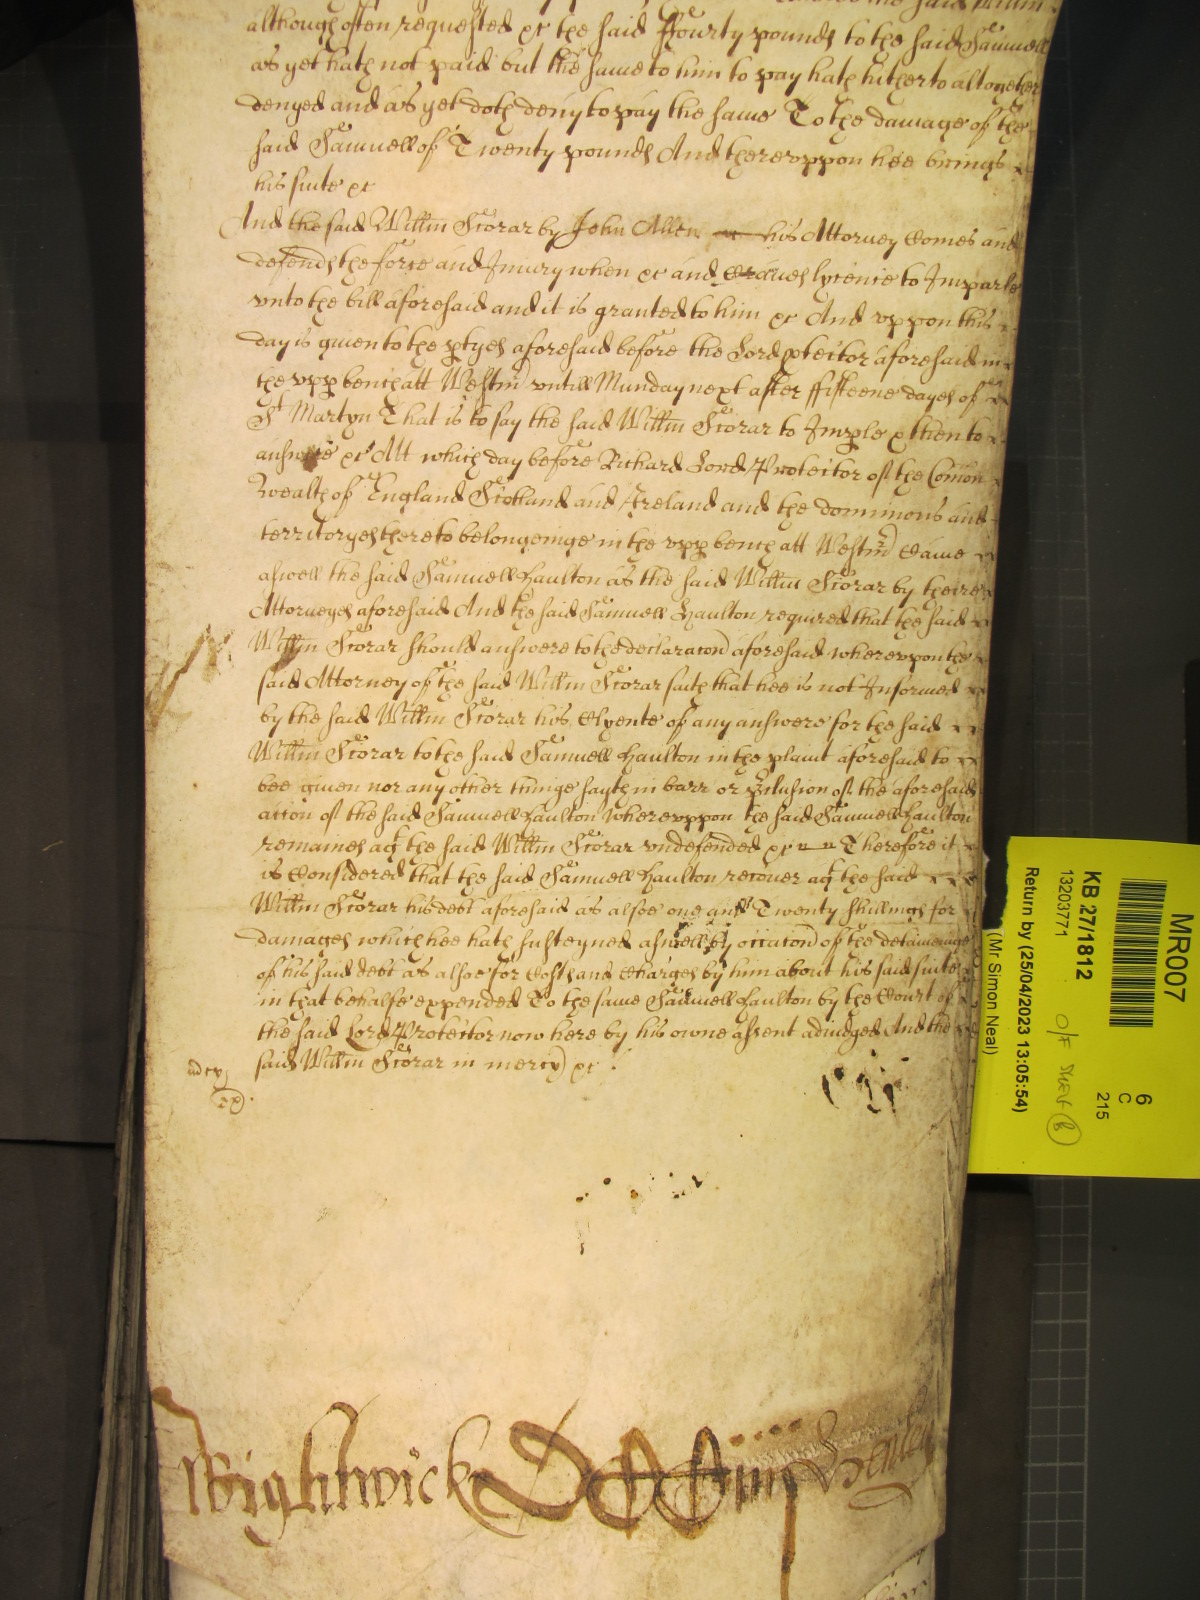 although often requested &c the said ffourty pounds to the said Samuell
as yet hath not paid but the same to him to pay hath hitherto altogether
denyed and as yet doth deny to pay the same To the damage of the
said Samuell of Twenty pounds And therevppon hee brings
his suite &c
And the said Willm Scorar by John Allen his Attorney Comes and
defends the force and Iniury when &c and Craues lycence to Imparle
vnto the bill aforesaid and it is granted to him &c And vppon this
day is giuen to the ptyes aforesaid before the Lord ptector aforesaid in
the vpp bench att Westmr vntill Munday next after ffifteene dayes of
St Martyn That is to say the said Willm Scorar to Imple & then to
answere &c Att which day before Richard Lord Protector of the Comon
Wealth of England Scotland and Ireland and the dominions and
territoryes thereto belongeinge in the vpp bench att Westmr Came
aswell the said Samuell Haulton as the said Willm Scorar by theire
Attorneyes aforesaid And the said Samuell Haulton required that the said
Willm Scorar should answere to the declaracon aforesaid wherevpon the
said Attorney of the said Willm Scorar saith that hee is not Informed
by the said Willm Scorar his Clyente of any answere for the said
Willm Scorar to the said Samuell Haulton in the plaint aforesaid to
bee giuen nor any other thinge sayth in barr or pclusion of the aforesaid
accion of the said Samuell Haulton Wherevppon the said Samuell Haulton
remaines agt the said Willm Scorar vndefended &c Therefore it
is Considered that the said Samuell Haulton recouer agt the said
Willm Scorar his debt aforesaid as alsoe one and Twenty shillings for
damages which hee hath susteyned aswell by occacon of the detaineinge
of his said debt as alsoe for Costs and Charges by him about his said suite
in that behalfe expended To the same Samuell Haulton by the Court of
the said Lord Protector now here by his owne assent adiudged And the
said Willm Scorar in mercy &c
Wightwick
Henley
MR007
KB 27/1812
13203771
6
C
215
Return by (25/04/2023 13:05:54)
(Mr Simon Neal)